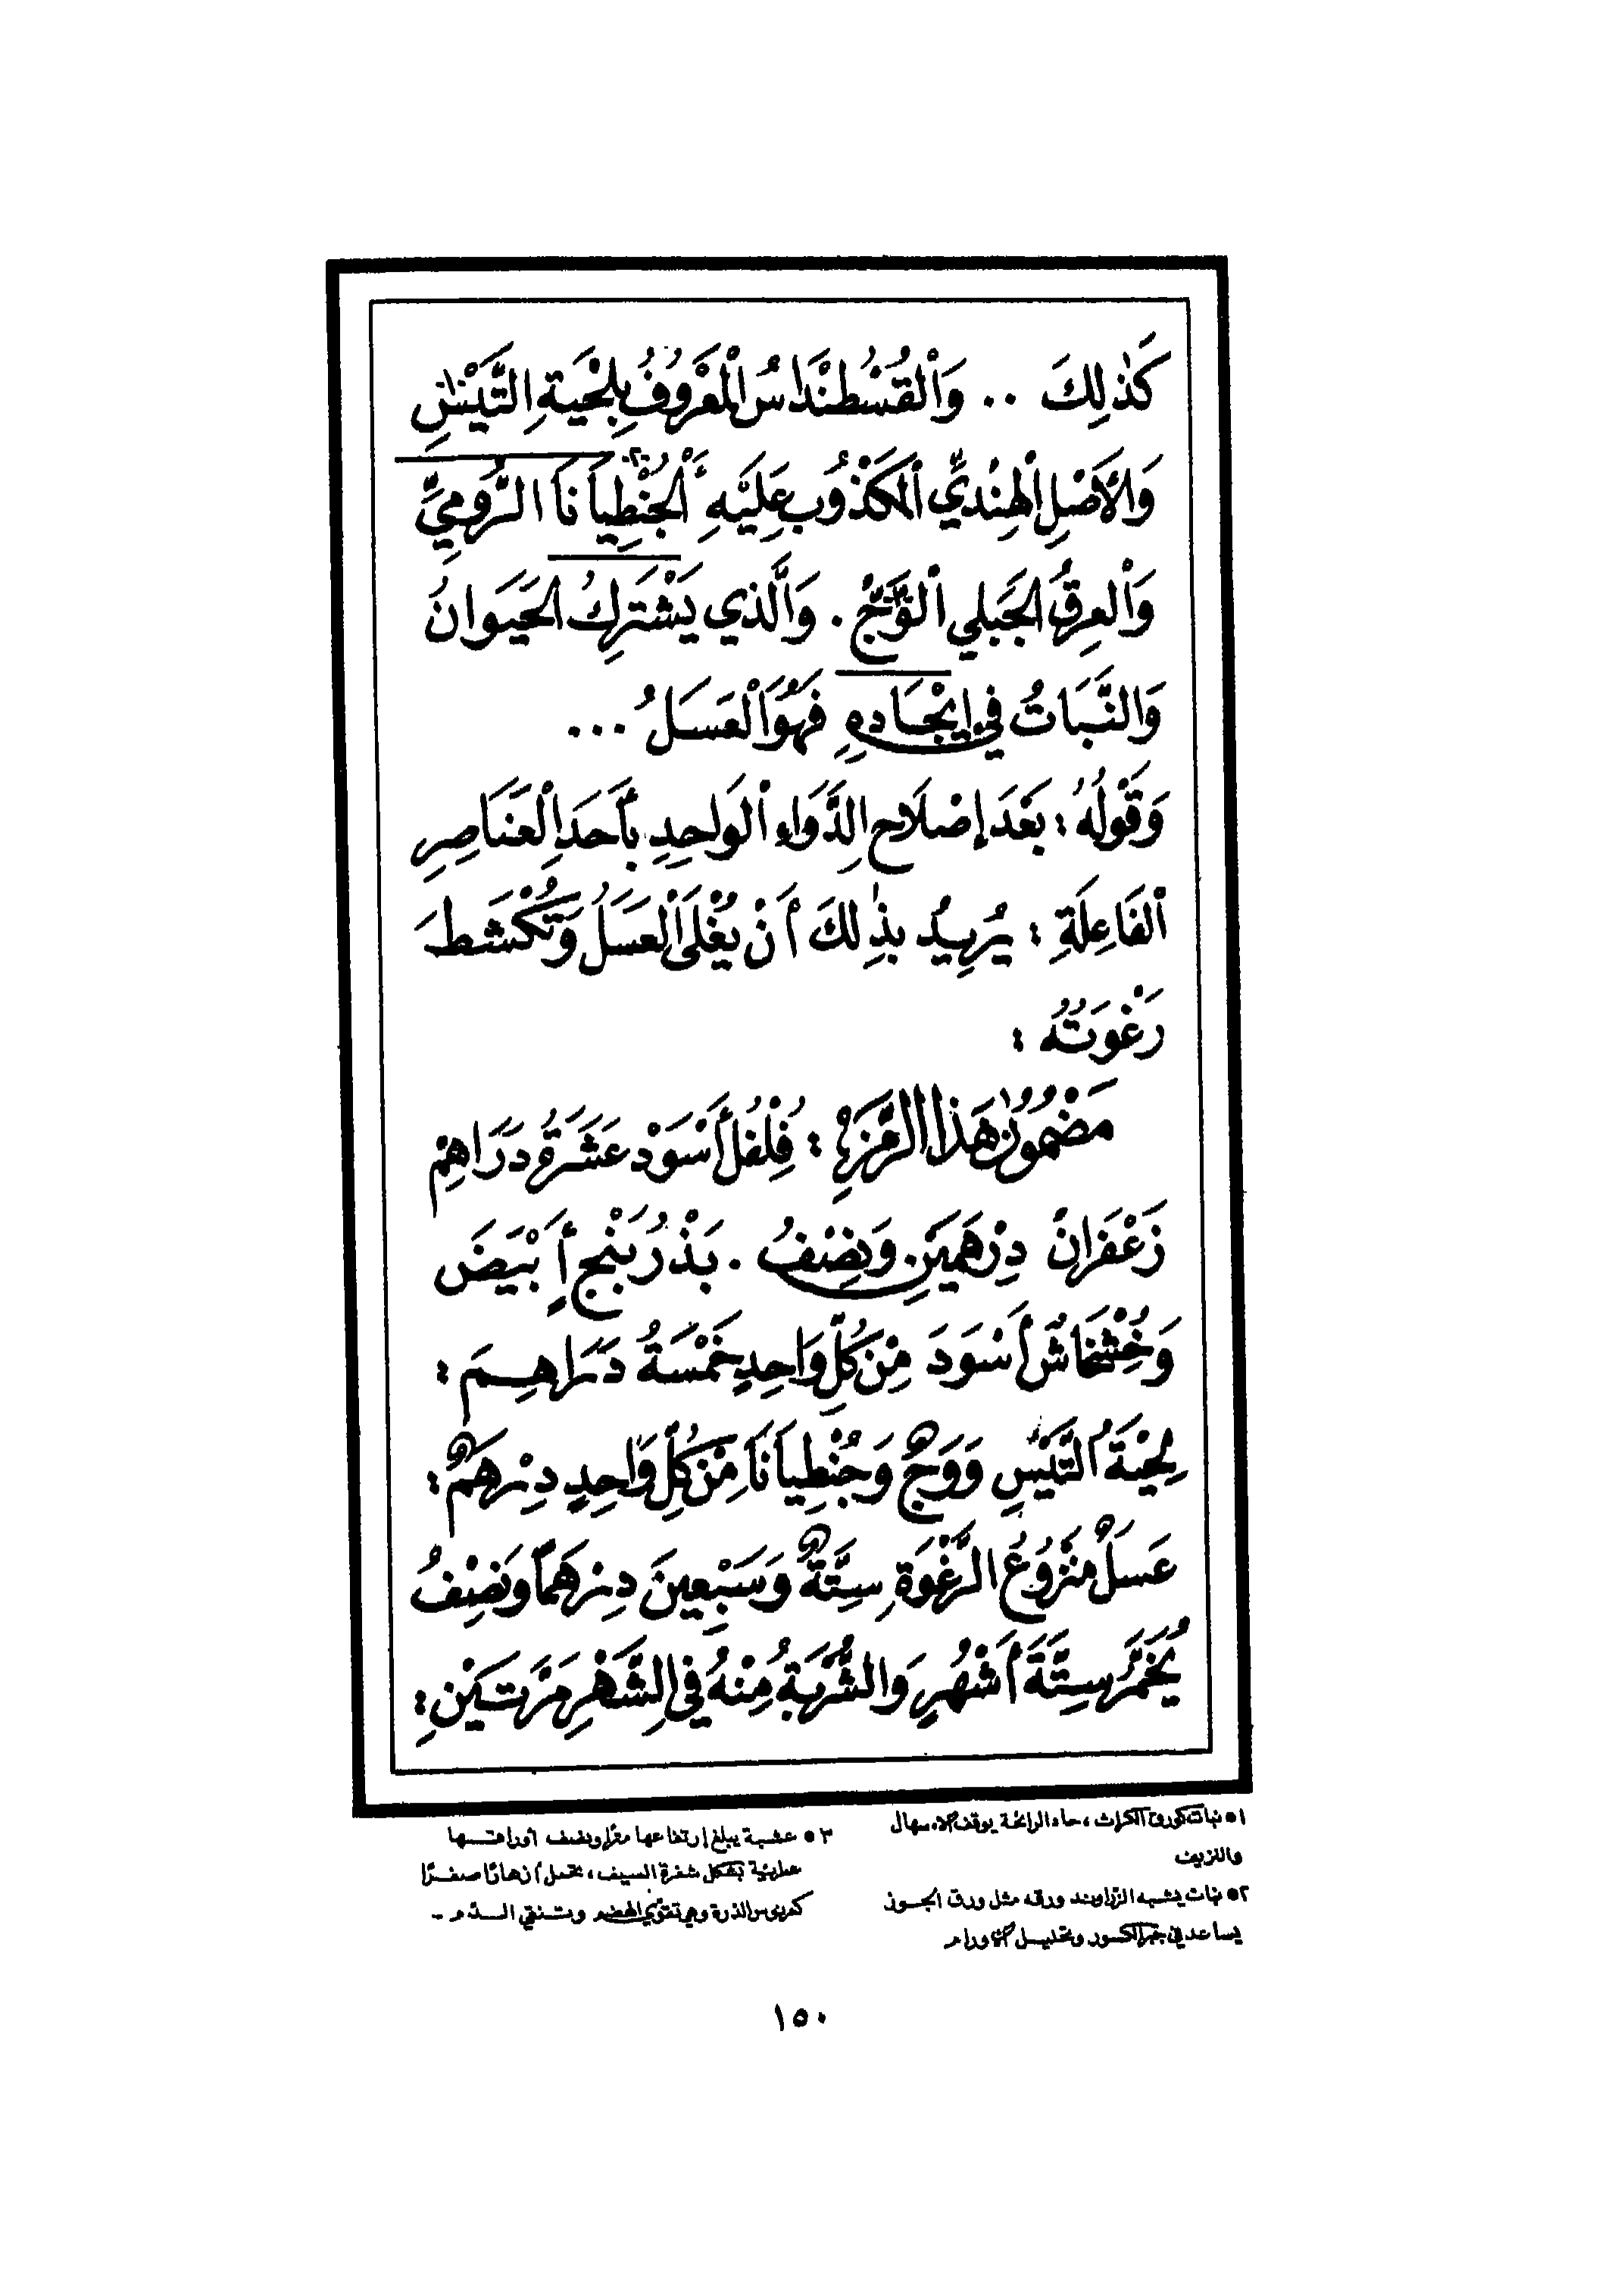 كَذٰلِكَ .. وَالْقُسْطَنْدَاسُ الْمَعْرُوفُ بِلِحْيَةِ التَّيْسِ
وَالْأَصْلِ الْهِنْدِيِّ الْمَكْذُوبِ عَلَيْهِ الْجَنْطِيَانَا الرُّومِيِّ
وَالْعِرْقُ الْجَبَلي الْوَجُّ . وَالَّذي يَشْتَرِكُ الْحَيَوَانُ
وَالنَّبَاتُ في إيْجَادِهِ فَهُوَ الْعَسَلُ ...
وَقَوْلُهُ : بَعْدَ إصْلَاحِ الدَّوَاءِ الْوَاحِدِ بأَحَدِ الْعَنَاصِرِ
الْفَاعِلَةِ : يُرِيدُ بذٰلِكَ أَنْ يُغْلَى الْعَسَلُ وَتُكْشَطَ
رَغْوَتُهُ :
مَضْمُونُ هَذَا الرَّمْزِ : فِلْفُل أَسْوَدْ عَشَرَةُ دَرَاهِمْ
زَعْفَرَانْ دِرْهَمَيْنِ وَنِصْفُ . بَذْرُ بَنْجٍ أَبْيَضَ
وَخُشْخَاشٌ أَسْوَدَ مِنْ كُلِّ وَاحِدٍ خَمْسَةُ دَرَاهِمَ :
لِحْيَةُ التَّيْسِ وَوَجٌّ وَجُنْطِيَانَا مِنْ كُلِّ وَاحِدٍ دِرْهَمٌ :
عَسَلٌ مَنْزُوعُ الرَّغْوَةِ سِتَّةٌ وَسَبْعِينَ دِرْهَمًا وَنِصْفُ
يُخَمَّرُ سِتَّةَ أَشْهُرٍ وَالشُّرْبَةُ مِنْهُ في الشَّهْرِ مَرَّتَيْنِ :
١• نبات كورق الكراث ، حاد الرائحة يوقف الاسهال
والنزيف
٢• نبات يشبه الزراوند ورقه مثل ورق الجوز
يساعد في جبر الكسور وتحليل الاورام
٣• عشبة يبلغ إرتفاعها مترا ونصف أوراقها
عطرية بشكل شفرة السيف ، تحمل أزهارًا صفرًا
كعرنوس الذرة وهي تقوي الهضم وتنقي الدم -
١٥٠